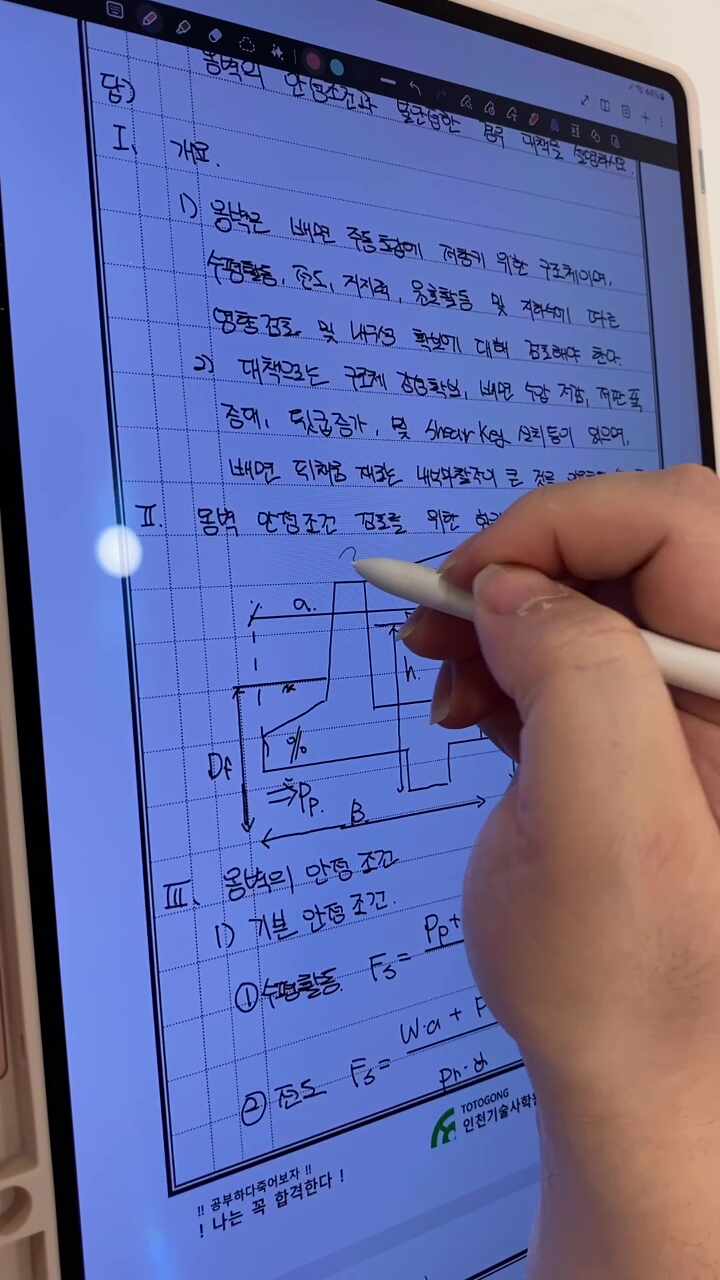 옹벽의 안정조건과 불안정한 경우 대책을 설명하시오.
답)
I. 개요.
1) 옹벽은 배면 주동토압에 저항키 위한 구조체이며,
수평활동, 전도, 지지력, 원호활동 및 지하수에 따른
영향검토 및 내구성 확보에 대해 검토해야 한다.
2) 대책으로는 구조체 강성확보, 배면 수압 저감, 저판 폭
증대, 뒷굽증가, 및 Shear Key 설치 등이 있으며,
배면 뒤채움 재료는 내부마찰각이 큰 것을
II. 옹벽 안정조건 검토를 위한
a.
h.
x
Df
⇒Pp.
B.
III. 옹벽의 안정 조건
1) 기본 안정 조건.
① 수평활동. Fs = Pp+
② 전도 Fs = W·a + P
TOTOGONG
인천기술사학원
!! 공부하다죽어보자 !!
! 나는 꼭 합격한다 !